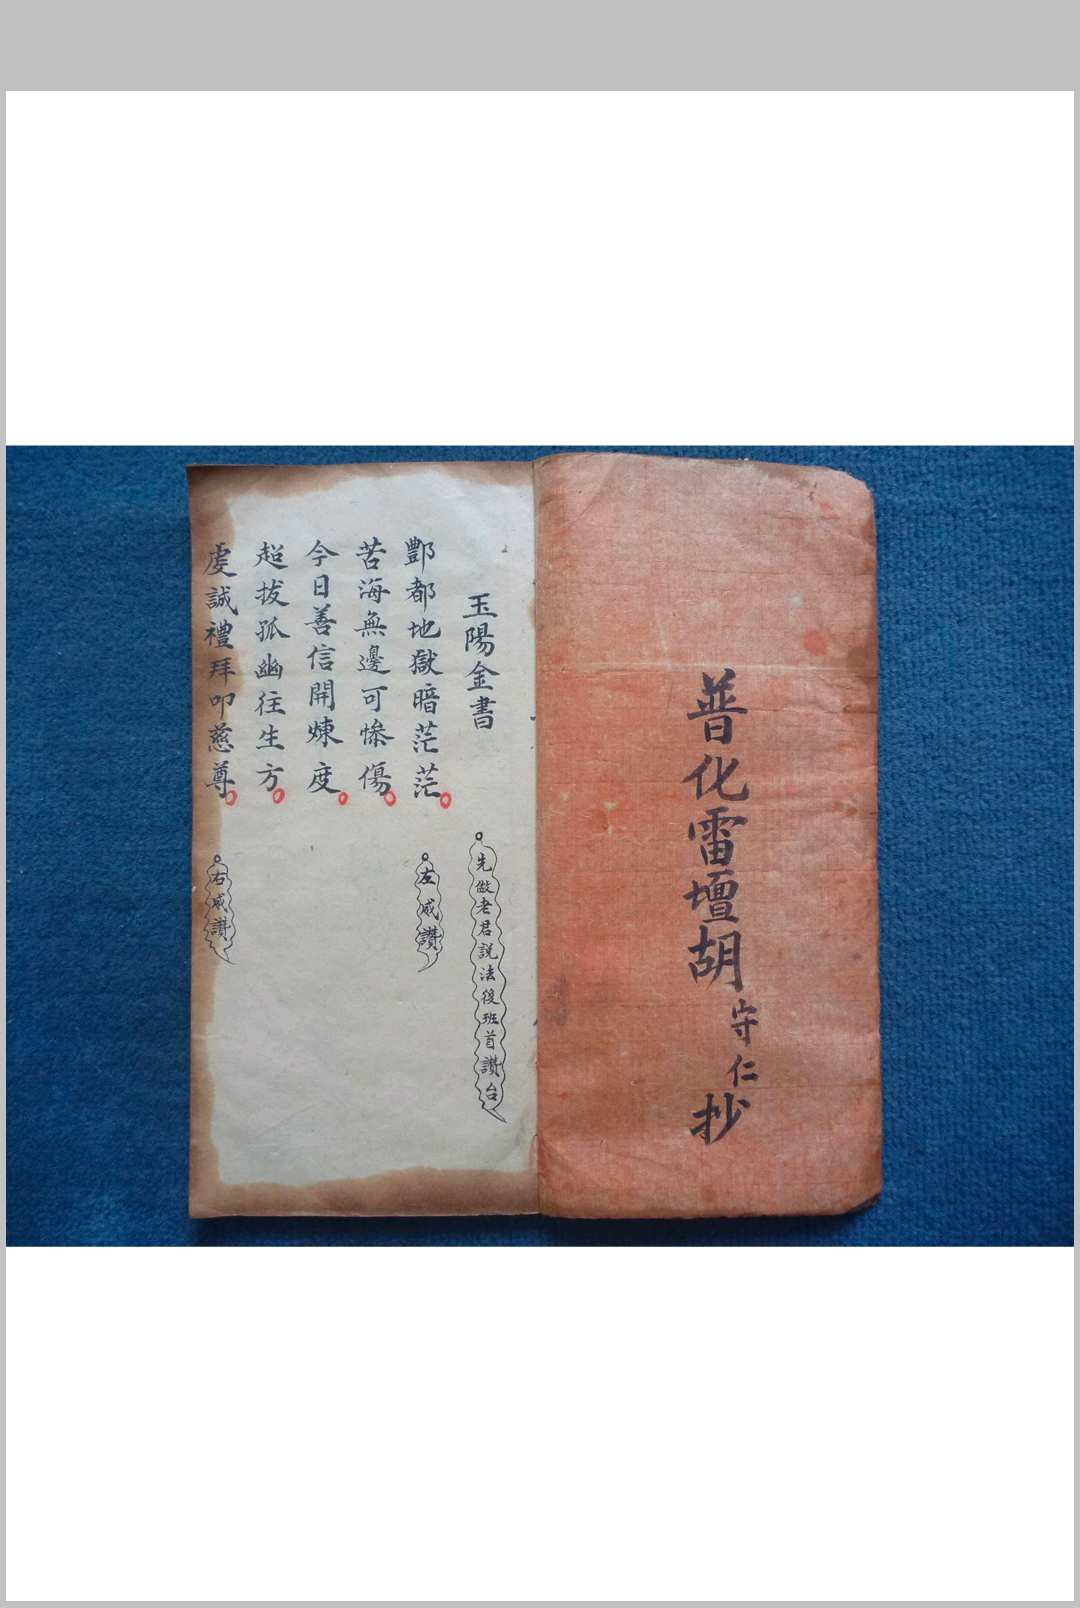 普化雷壇胡守仁抄
玉陽金書
先做老君説法後班首讚台
酆都地獄暗茫茫
左威讚
苦海無邊可慘傷
今日善信開煉度
超拔孤幽往生方
虔誠禮拜叩慈尊
右威讚